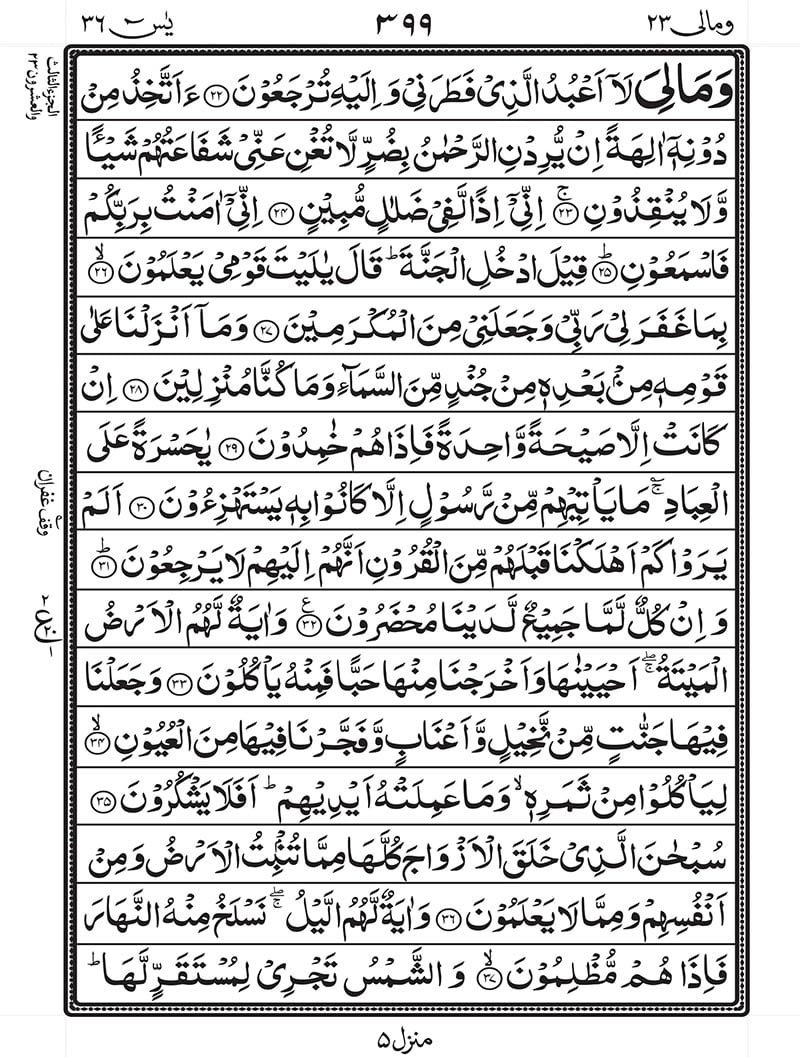 ومالی ۲۳
۳۹۹
یٰسٓ ۳۶
الجزء الثالث والعشرون ۲۳
وَمَالِیَ لَاۤ اَعۡبُدُ الَّذِیۡ فَطَرَنِیۡ وَ اِلَیۡهِ تُرۡجَعُوۡنَ ﴿۲۲﴾ ءَ اَتَّخِذُ مِنۡ
دُوۡنِهٖۤ اٰلِهَةً اِنۡ یُّرِدۡنِ الرَّحۡمٰنُ بِضُرٍّ لَّا تُغۡنِ عَنِّیۡ شَفَاعَتُهُمۡ شَیۡـًٔا
وَّلَا یُنۡقِذُوۡنِ ﴿ۚ۲۳﴾ اِنِّیۡۤ اِذًا لَّفِیۡ ضَلٰلٍ مُّبِیۡنٍ ﴿۲۴﴾ اِنِّیۡۤ اٰمَنۡتُ بِرَبِّكُمۡ
فَاسۡمَعُوۡنِ ﴿ؕ۲۵﴾ قِیۡلَ ادۡخُلِ الۡجَنَّةَ ؕ قَالَ یٰلَیۡتَ قَوۡمِیۡ یَعۡلَمُوۡنَ ﴿ۙ۲۶﴾
بِمَا غَفَرَ لِیۡ رَبِّیۡ وَجَعَلَنِیۡ مِنَ الۡمُكۡرَمِیۡنَ ﴿۲۷﴾ وَمَاۤ اَنۡزَلۡنَا عَلٰی
قَوۡمِهٖ مِنۡۢ بَعۡدِهٖ مِنۡ جُنۡدٍ مِّنَ السَّمَآءِ وَمَا كُنَّا مُنۡزِلِیۡنَ ﴿۲۸﴾ اِنۡ
كَانَتۡ اِلَّا صَیۡحَةً وَّاحِدَةً فَاِذَا هُمۡ خٰمِدُوۡنَ ﴿۲۹﴾ یٰحَسۡرَةً عَلَی
الۡعِبَادِ ۚؔ مَا یَاۡتِیۡهِمۡ مِّنۡ رَّسُوۡلٍ اِلَّا كَانُوۡا بِهٖ یَسۡتَهۡزِءُوۡنَ ﴿۳۰﴾ اَلَمۡ
وقف غفران
یَرَوۡا كَمۡ اَهۡلَكۡنَا قَبۡلَهُمۡ مِّنَ الۡقُرُوۡنِ اَنَّهُمۡ اِلَیۡهِمۡ لَا یَرۡجِعُوۡنَ ﴿ؕ۳۱﴾
وَ اِنۡ كُلٌّ لَّمَّا جَمِیۡعٌ لَّدَیۡنَا مُحۡضَرُوۡنَ ﴿۳۲﴾ وَاٰیَةٌ لَّهُمُ الۡاَرۡضُ
الۡمَیۡتَةُ ۖۚ اَحۡیَیۡنٰهَا وَاَخۡرَجۡنَا مِنۡهَا حَبًّا فَمِنۡهُ یَاۡكُلُوۡنَ ﴿۳۳﴾ وَجَعَلۡنَا
فِیۡهَا جَنّٰتٍ مِّنۡ نَّخِیۡلٍ وَّاَعۡنَابٍ وَّفَجَّرۡنَا فِیۡهَا مِنَ الۡعُیُوۡنِ ﴿ۙ۳۴﴾
لِیَاۡكُلُوۡا مِنۡ ثَمَرِهٖ ۙ وَمَا عَمِلَتۡهُ اَیۡدِیۡهِمۡ ؕ اَفَلَا یَشۡكُرُوۡنَ ﴿۳۵﴾
سُبۡحٰنَ الَّذِیۡ خَلَقَ الۡاَزۡوَاجَ كُلَّهَا مِمَّا تُنۡۢبِتُ الۡاَرۡضُ وَمِنۡ
اَنۡفُسِهِمۡ وَمِمَّا لَا یَعۡلَمُوۡنَ ﴿۳۶﴾ وَاٰیَةٌ لَّهُمُ الَّیۡلُ ۖۚ نَسۡلَخُ مِنۡهُ النَّهَارَ
فَاِذَا هُمۡ مُّظۡلِمُوۡنَ ﴿ۙ۳۷﴾ وَ الشَّمۡسُ تَجۡرِیۡ لِمُسۡتَقَرٍّ لَّهَا ؕ
منزل ۵